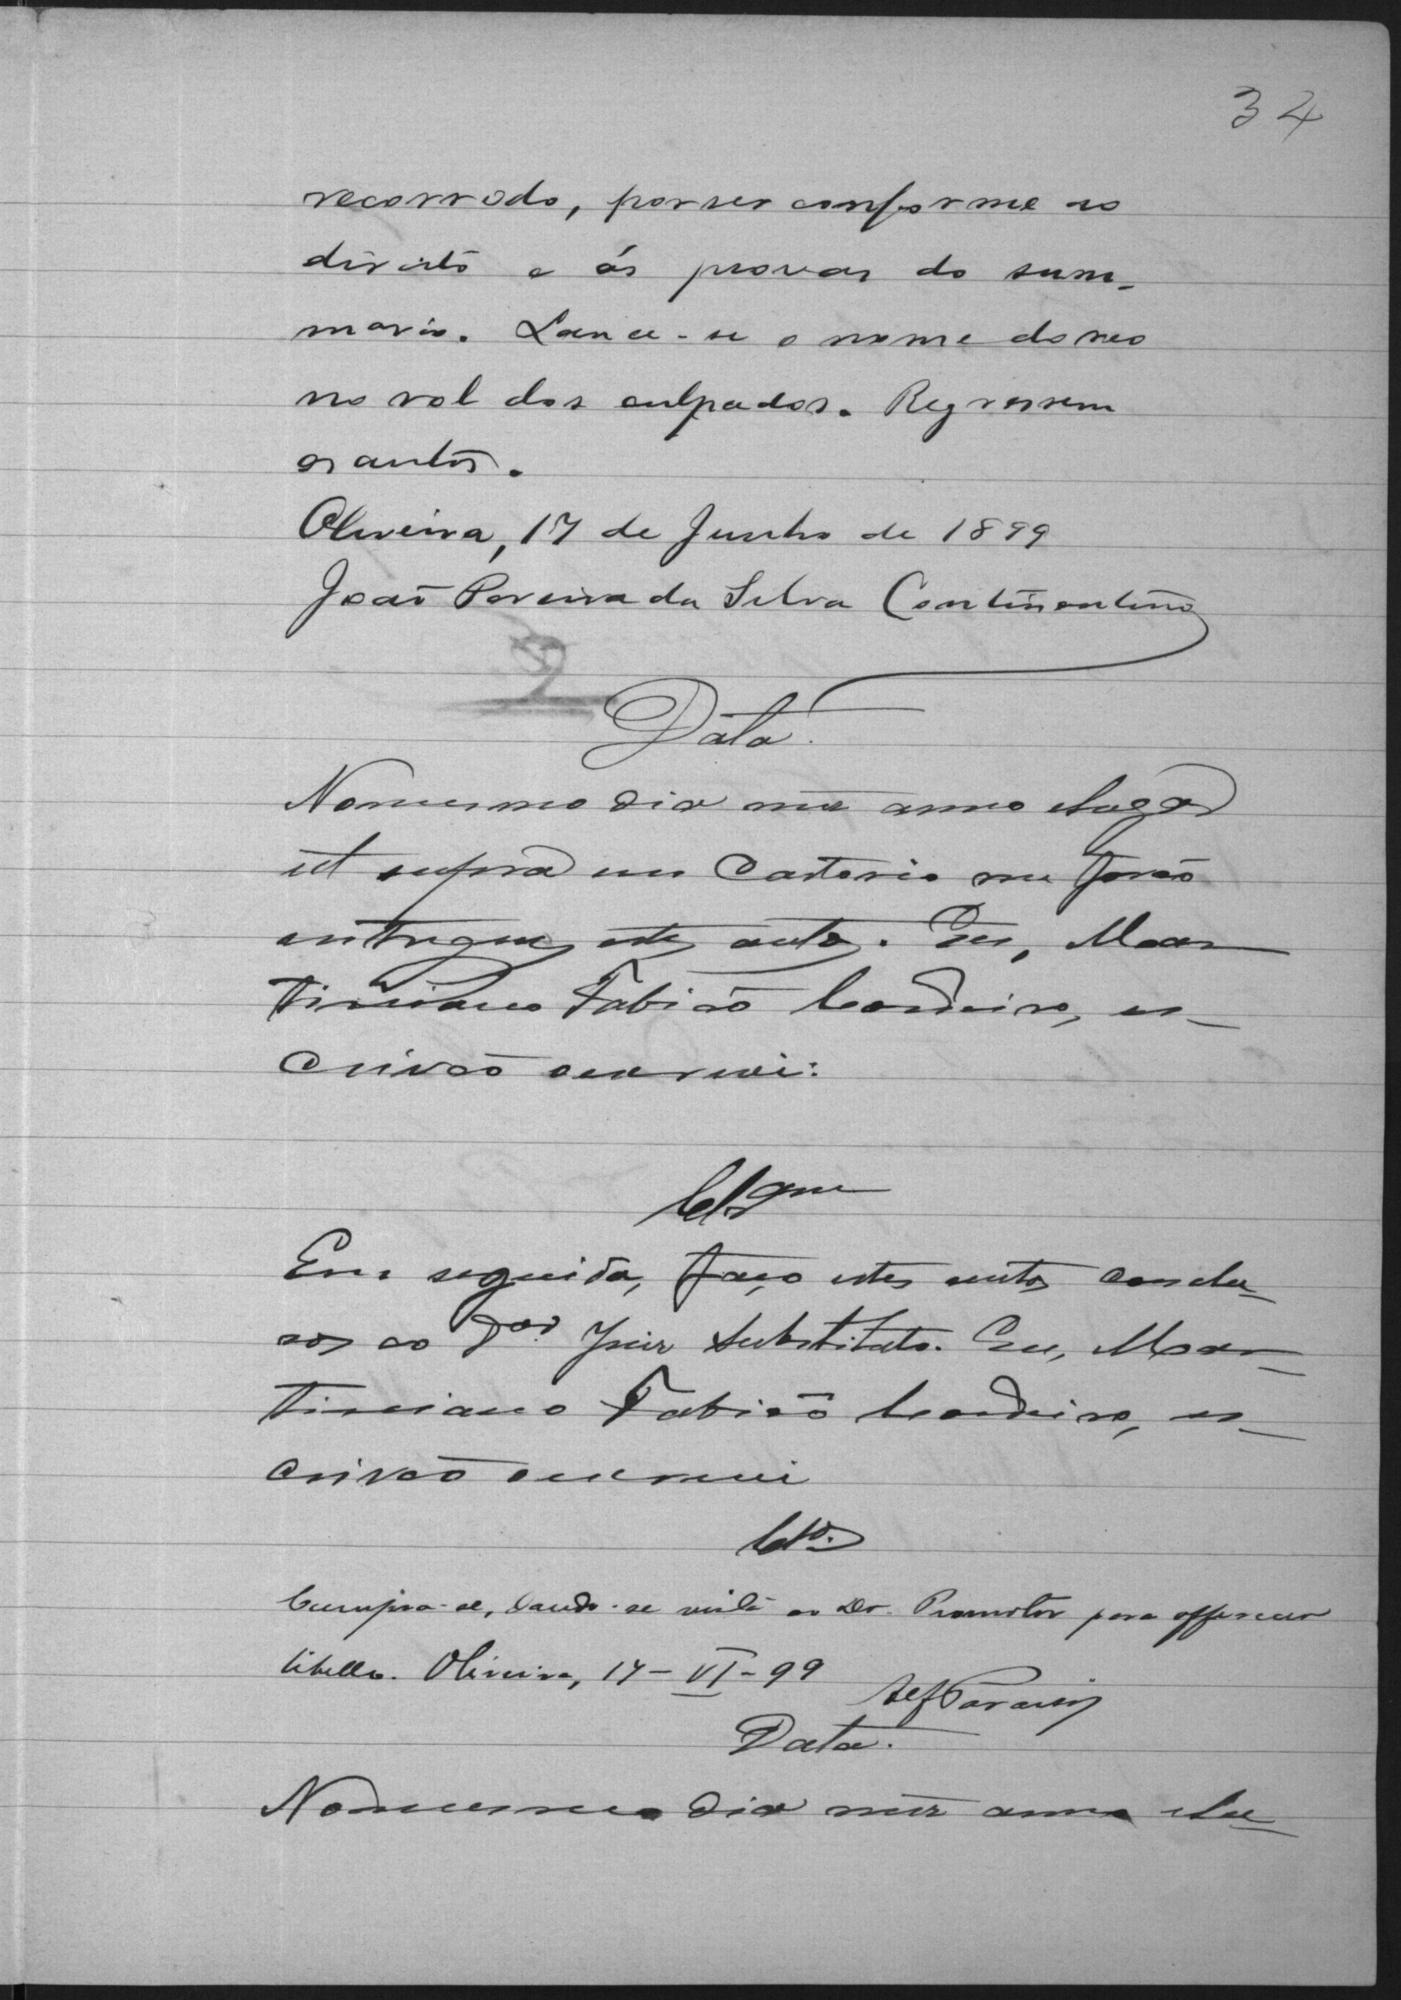 34
recorrido, por ser conforme ao
direito e ás provas do sum-
mario. Lance-se o nome do reo
no rol dos culpados. Regressem
os autos.
Oliveira, 17 de Junho de 1899
João Pereira da Silva Continentino
Data.
No mesmo dia mez anno e lugar
ut supra em Cartorio me forão
entregues estes autos. Eu, Mar-
tiniano Fabião Cordeiro, es-
crivão escrevi:
Clsam
Em seguida, faço estes autos conclu-
sos ao Dor. Juiz Substituto. Eu, Mar-
tiniano Fabião Cordeiro, es-
crivão escrevi
Clo.
Cumpra-se, dando-se vista ao Dr. Promotor para offerecer
libello. Oliveira, 17-VI-99
Data.
No mesmo dia mez anno e lu-